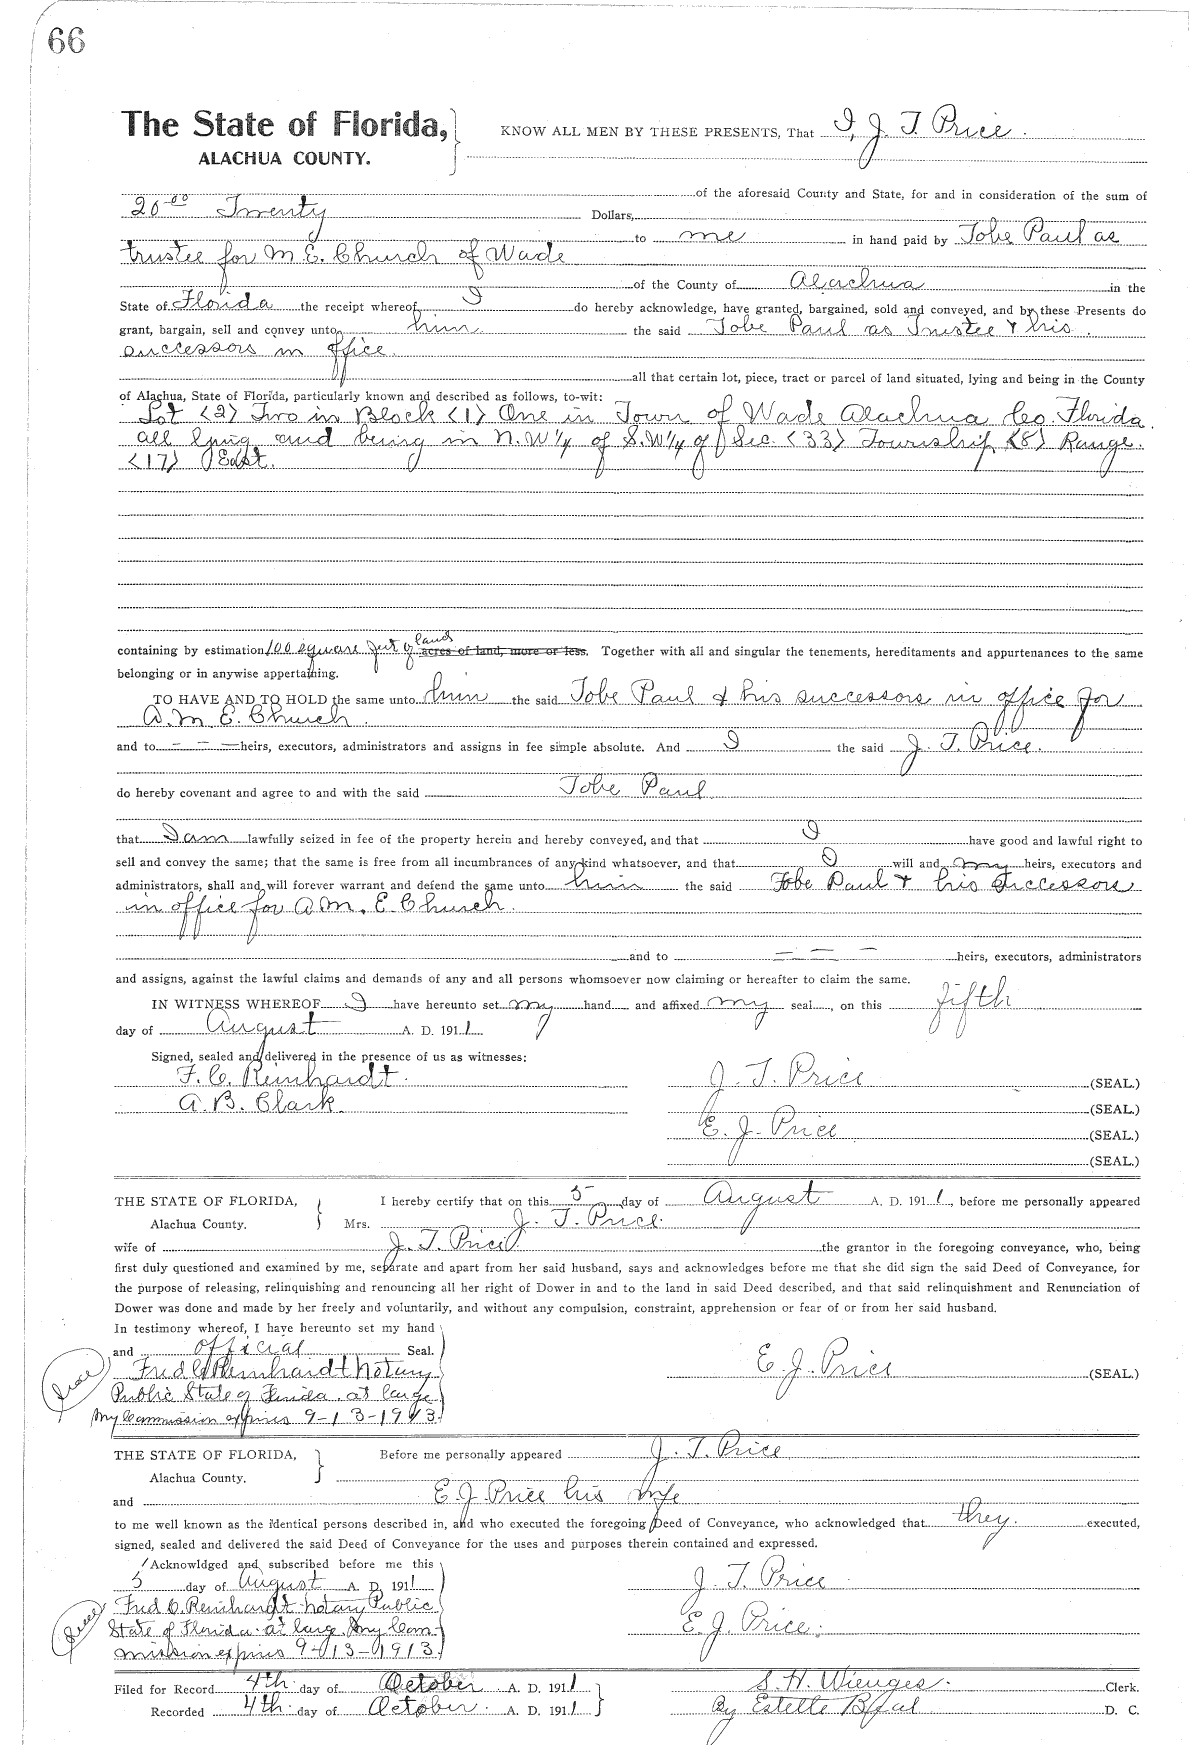 66
The State of Florida, KNOW ALL MEN BY THESE PRESENTS, That I, J. T. Price.
ALACHUA COUNTY.
of the aforesaid County and State, for and in consideration of the sum of
20 00 Twenty Dollars,
to me in hand paid by Tobe Paul as
trustee for M E. Church of Wade
of the County of Alachua in the
State of Florida the receipt whereof I do hereby acknowledge, have granted, bargained, sold and conveyed, and by these Presents do
grant, bargain, sell and convey unto him the said Tobe Paul as Trustee & his
successors in office.
all that certain lot, piece, tract or parcel of land situated, lying and being in the County
of Alachua, State of Florida, particularly known and described as follows, to-wit:
Lot <2> Two in Block <1> One in Town of Wade Alachua Co. Florida.
all lying and being in N.W 1/4 of S.W 1/4 of Sec. <33> Township <8> Range.
<17> East.
containing by estimation 100 square feet of land acres of land, more or less. Together with all and singular the tenements, hereditaments and appurtenances to the same
belonging or in anywise appertaining.
TO HAVE AND TO HOLD the same unto him the said Tobe Paul & his successors in office for
A.M E. Church.
and to - - - heirs, executors, administrators and assigns in fee simple absolute. And I the said J. T. Price.
do hereby covenant and agree to and with the said Tobe Paul
that I am lawfully seized in fee of the property herein and hereby conveyed, and that I have good and lawful right to
sell and convey the same; that the same is free from all incumbrances of any kind whatsoever, and that I will and my heirs, executors and
administrators, shall and will forever warrant and defend the same unto him the said Tobe Paul & his successors
in office for A M. E. Church.
and to - - - heirs, executors, administrators
and assigns, against the lawful claims and demands of any and all persons whomsoever now claiming or hereafter to claim the same.
IN WITNESS WHEREOF I have hereunto set my hand and affixed my seal, on this fifth
day of August A. D. 1911.
Signed, sealed and delivered in the presence of us as witnesses:
F. C. Reinhardt. J. T. Price (SEAL.)
A. B. Clark (SEAL.)
E. J. Price (SEAL.)
(SEAL.)
THE STATE OF FLORIDA, I hereby certify that on this 5 day of August A. D. 1911, before me personally appeared
Alachua County. Mrs. J. T. Price.
wife of J. T. Price the grantor in the foregoing conveyance, who, being
first duly questioned and examined by me, separate and apart from her said husband, says and acknowledges before me that she did sign the said Deed of Conveyance, for
the purpose of releasing, relinquishing and renouncing all her right of Dower in and to the land in said Deed described, and that said relinquishment and Renunciation of
Dower was done and made by her freely and voluntarily, and without any compulsion, constraint, apprehension or fear of or from her said husband.
In testimony whereof, I have hereunto set my hand
and official Seal.
Fred C Reinhardt Notary E. J. Price (SEAL)
Public State of Florida. at large
My Commission expires 9-13-1913.
THE STATE OF FLORIDA, Before me personally appeared J. T. Price
Alachua County.
and E. J. Price his wife
to me well known as the identical persons described in, and who executed the foregoing Deed of Conveyance, who acknowledged that they. executed,
signed, sealed and delivered the said Deed of Conveyance for the uses and purposes therein contained and expressed.
Acknowldged and subscribed before me this
5 day of August A. D. 1911 J. T. Price
Fred C. Reinhardt Notary Public
State of Florida. at large My Com- E. J. Price.
mission expires 9-13-1913.
Filed for Record 4th. day of October A. D. 1911 S. H. Wienges. Clerk.
Recorded 4th. day of October. A. D. 1911 By Estelle Beal D. C.